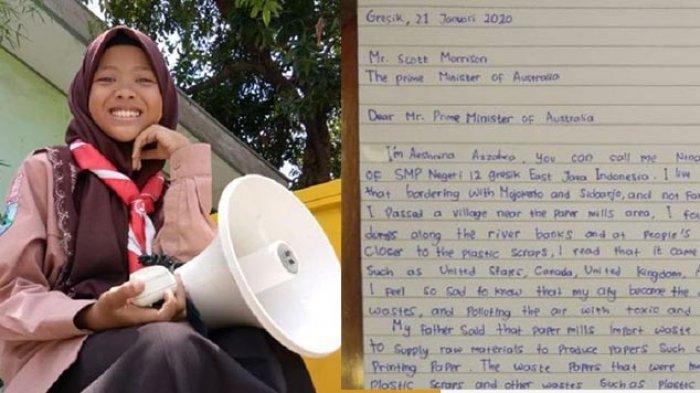 Gresik, 21 Januari 2020
Mr. Scott Morrison
The prime Minister of Australia
Dear Mr. Prime Minister of Australia
I'm Aeshnina Azzahra. You can call me
OF SMP Negeri 12 gresik East Java Indonesia. I live
that bordering with Mojokerto and Sidoarjo, and not far
I Passed a village near the paper mills area, I
dumps along the river banks and at People's
Closer to the plastic scraps, I read that it came
Such as United States, Canada, United kingdom,
I feel so sad to know that my city become the
wastes, and Polluting the air with toxic and
My father said that paper mills import waste
to supply raw materials to produce papers such
Printing Paper. The waste Papers that were
Plastic scraps and other wastes Such as plastic